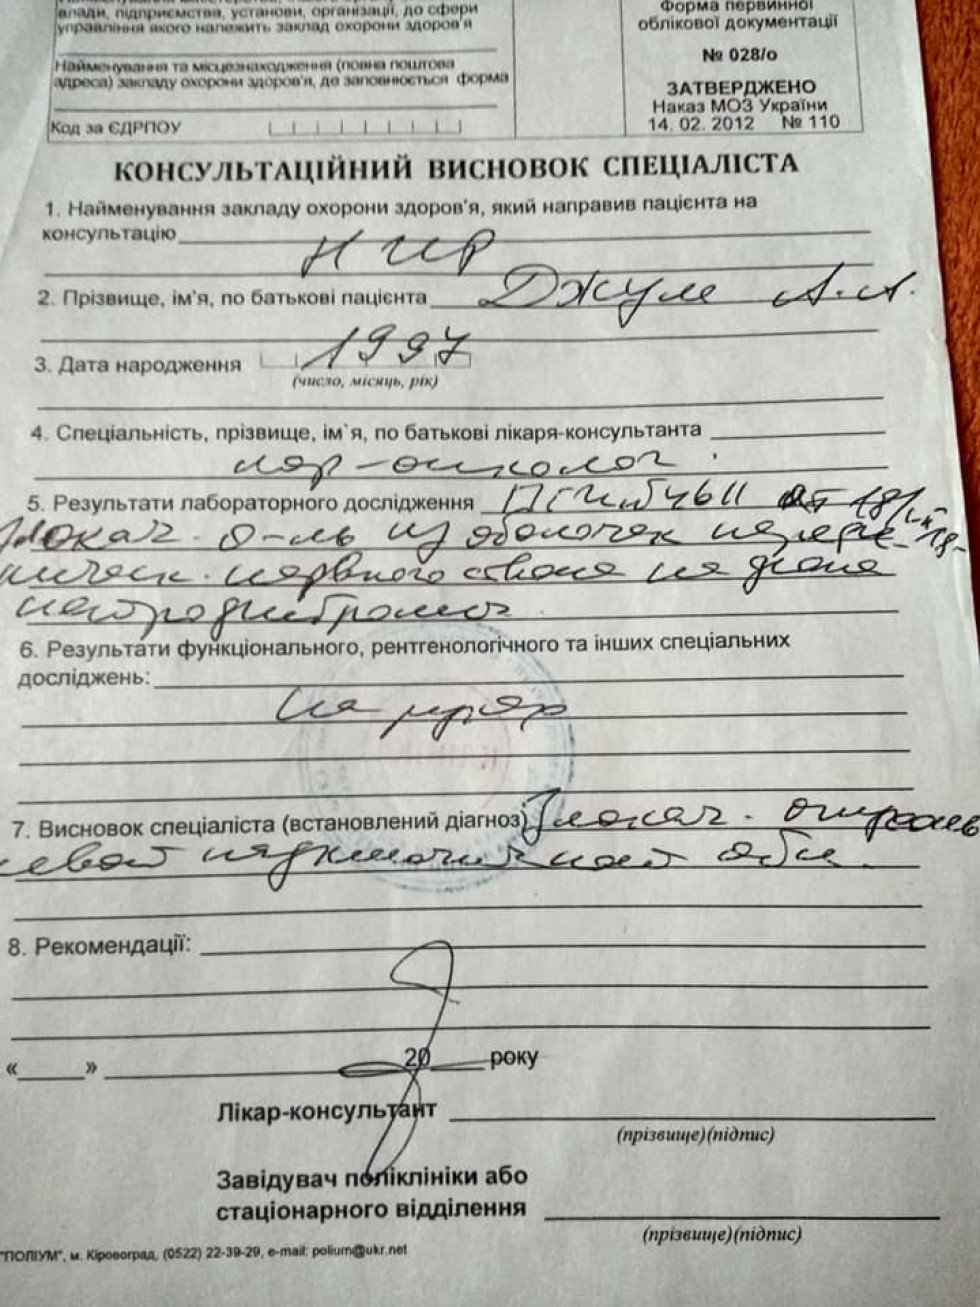 влади, підприємства, установи, організації, до сфери
управління якого належить заклад охорони здоров'я
Найменування та місцезнаходження (повна поштова
адреса) закладу охорони здоров'я, де заповнюється форма
Код за ЄДРПОУ
Форма первинної
облікової документації
№ 028/о
ЗАТВЕРДЖЕНО
Наказ МОЗ України
14. 02. 2012 № 110
КОНСУЛЬТАЦІЙНИЙ ВИСНОВОК СПЕЦІАЛІСТА
1. Найменування закладу охорони здоров'я, який направив пацієнта на
консультацію
2. Прізвище, ім'я, по батькові пацієнта Джум А.А.
3. Дата народження 1997
(число, місяць, рік)
4. Спеціальність, прізвище, ім`я, по батькові лікаря-консультанта
лор-онколог
5. Результати лабораторного дослідження от 18/
Злокач. о-ль из оболочек перефе-
рическ. нервного ствола на фоне
нейрофибромы
6. Результати функціонального, рентгенологічного та інших спеціальних
досліджень:
на руках
7. Висновок спеціаліста (встановлений діагноз) Злокач. опухоль
левой надключичной обл.
8. Рекомендації:
«____» 20____ року
Лікар-консультант
(прізвище)(підпис)
Завідувач поліклініки або
стаціонарного відділення
(прізвище)(підпис)
"ПОЛІУМ", м. Кіровоград, (0522) 22-39-29, e-mail: polium@ukr.net